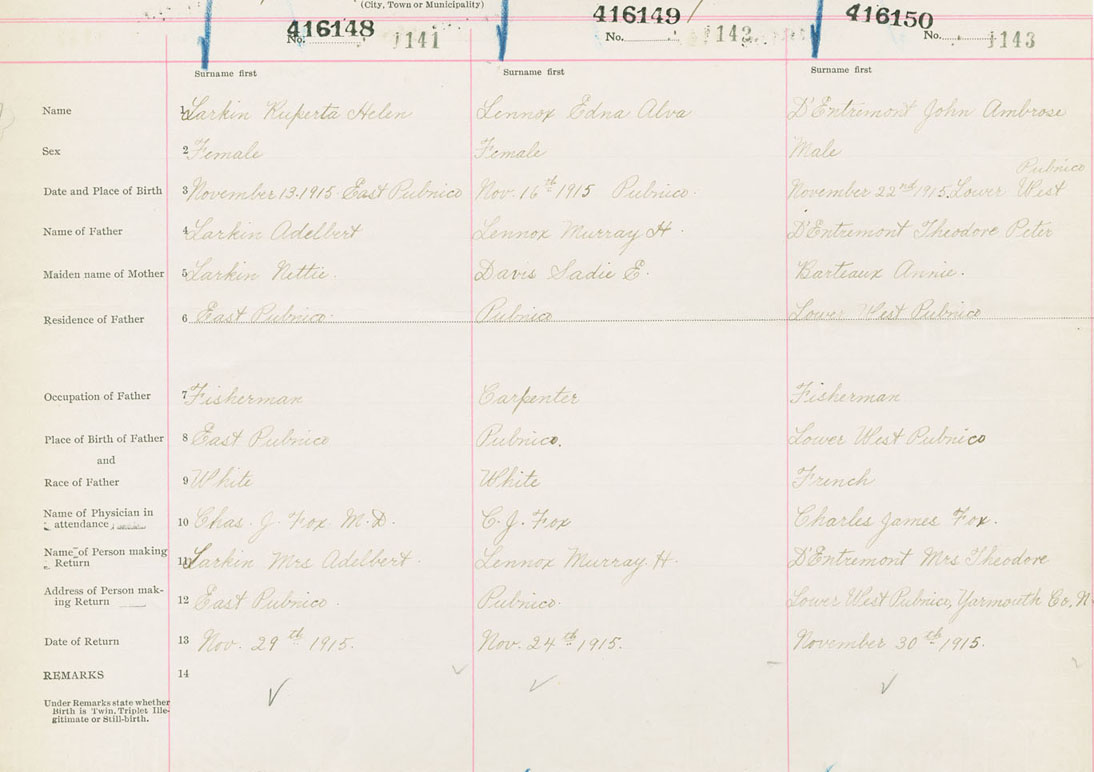 (City, Town or Municipality)
416148 416149 416150
No. 1141 No. 1142 No. 1143
Surname first Surname first Surname first
Name 1 Larkin Ruperta Helen Lennox Edna Alva D'Entremont John Ambrose
Sex 2 Female Female Male
Pubnico
Date and Place of Birth 3 November 13. 1915 East Pubnico Nov. 16th 1915 Pubnico. November 22nd 1915. Lower West
Name of Father 4 Larkin Adelbert Lennox Murray H. D'Entremont Theodore Peter
Maiden name of Mother 5 Larkin Nettie. Davis Sadie E. Barteaux Annie.
Residence of Father 6 East Pubnico. Pubnico Lower West Pubnico
Occupation of Father 7 Fisherman Carpenter Fisherman
Place of Birth of Father 8 East Pubnico Pubnico. Lower West Pubnico
and
Race of Father 9 White White French
Name of Physician in
attendance 10 Chas. J. Fox M.D. C. J. Fox Charles James Fox.
Name of Person making
Return 11 Larkin Mrs Adelbert. Lennox Murray H. D'Entremont Mrs Theodore
Address of Person mak-
ing Return 12 East Pubnico. Pubnico. Lower West Pubnico, Yarmouth Co. N
Date of Return 13 Nov. 29th 1915. Nov. 24th 1915. November 30th 1915.
REMARKS 14
Under Remarks state whether
Birth is Twin, Triplet Ille-
gitimate or Still-birth.